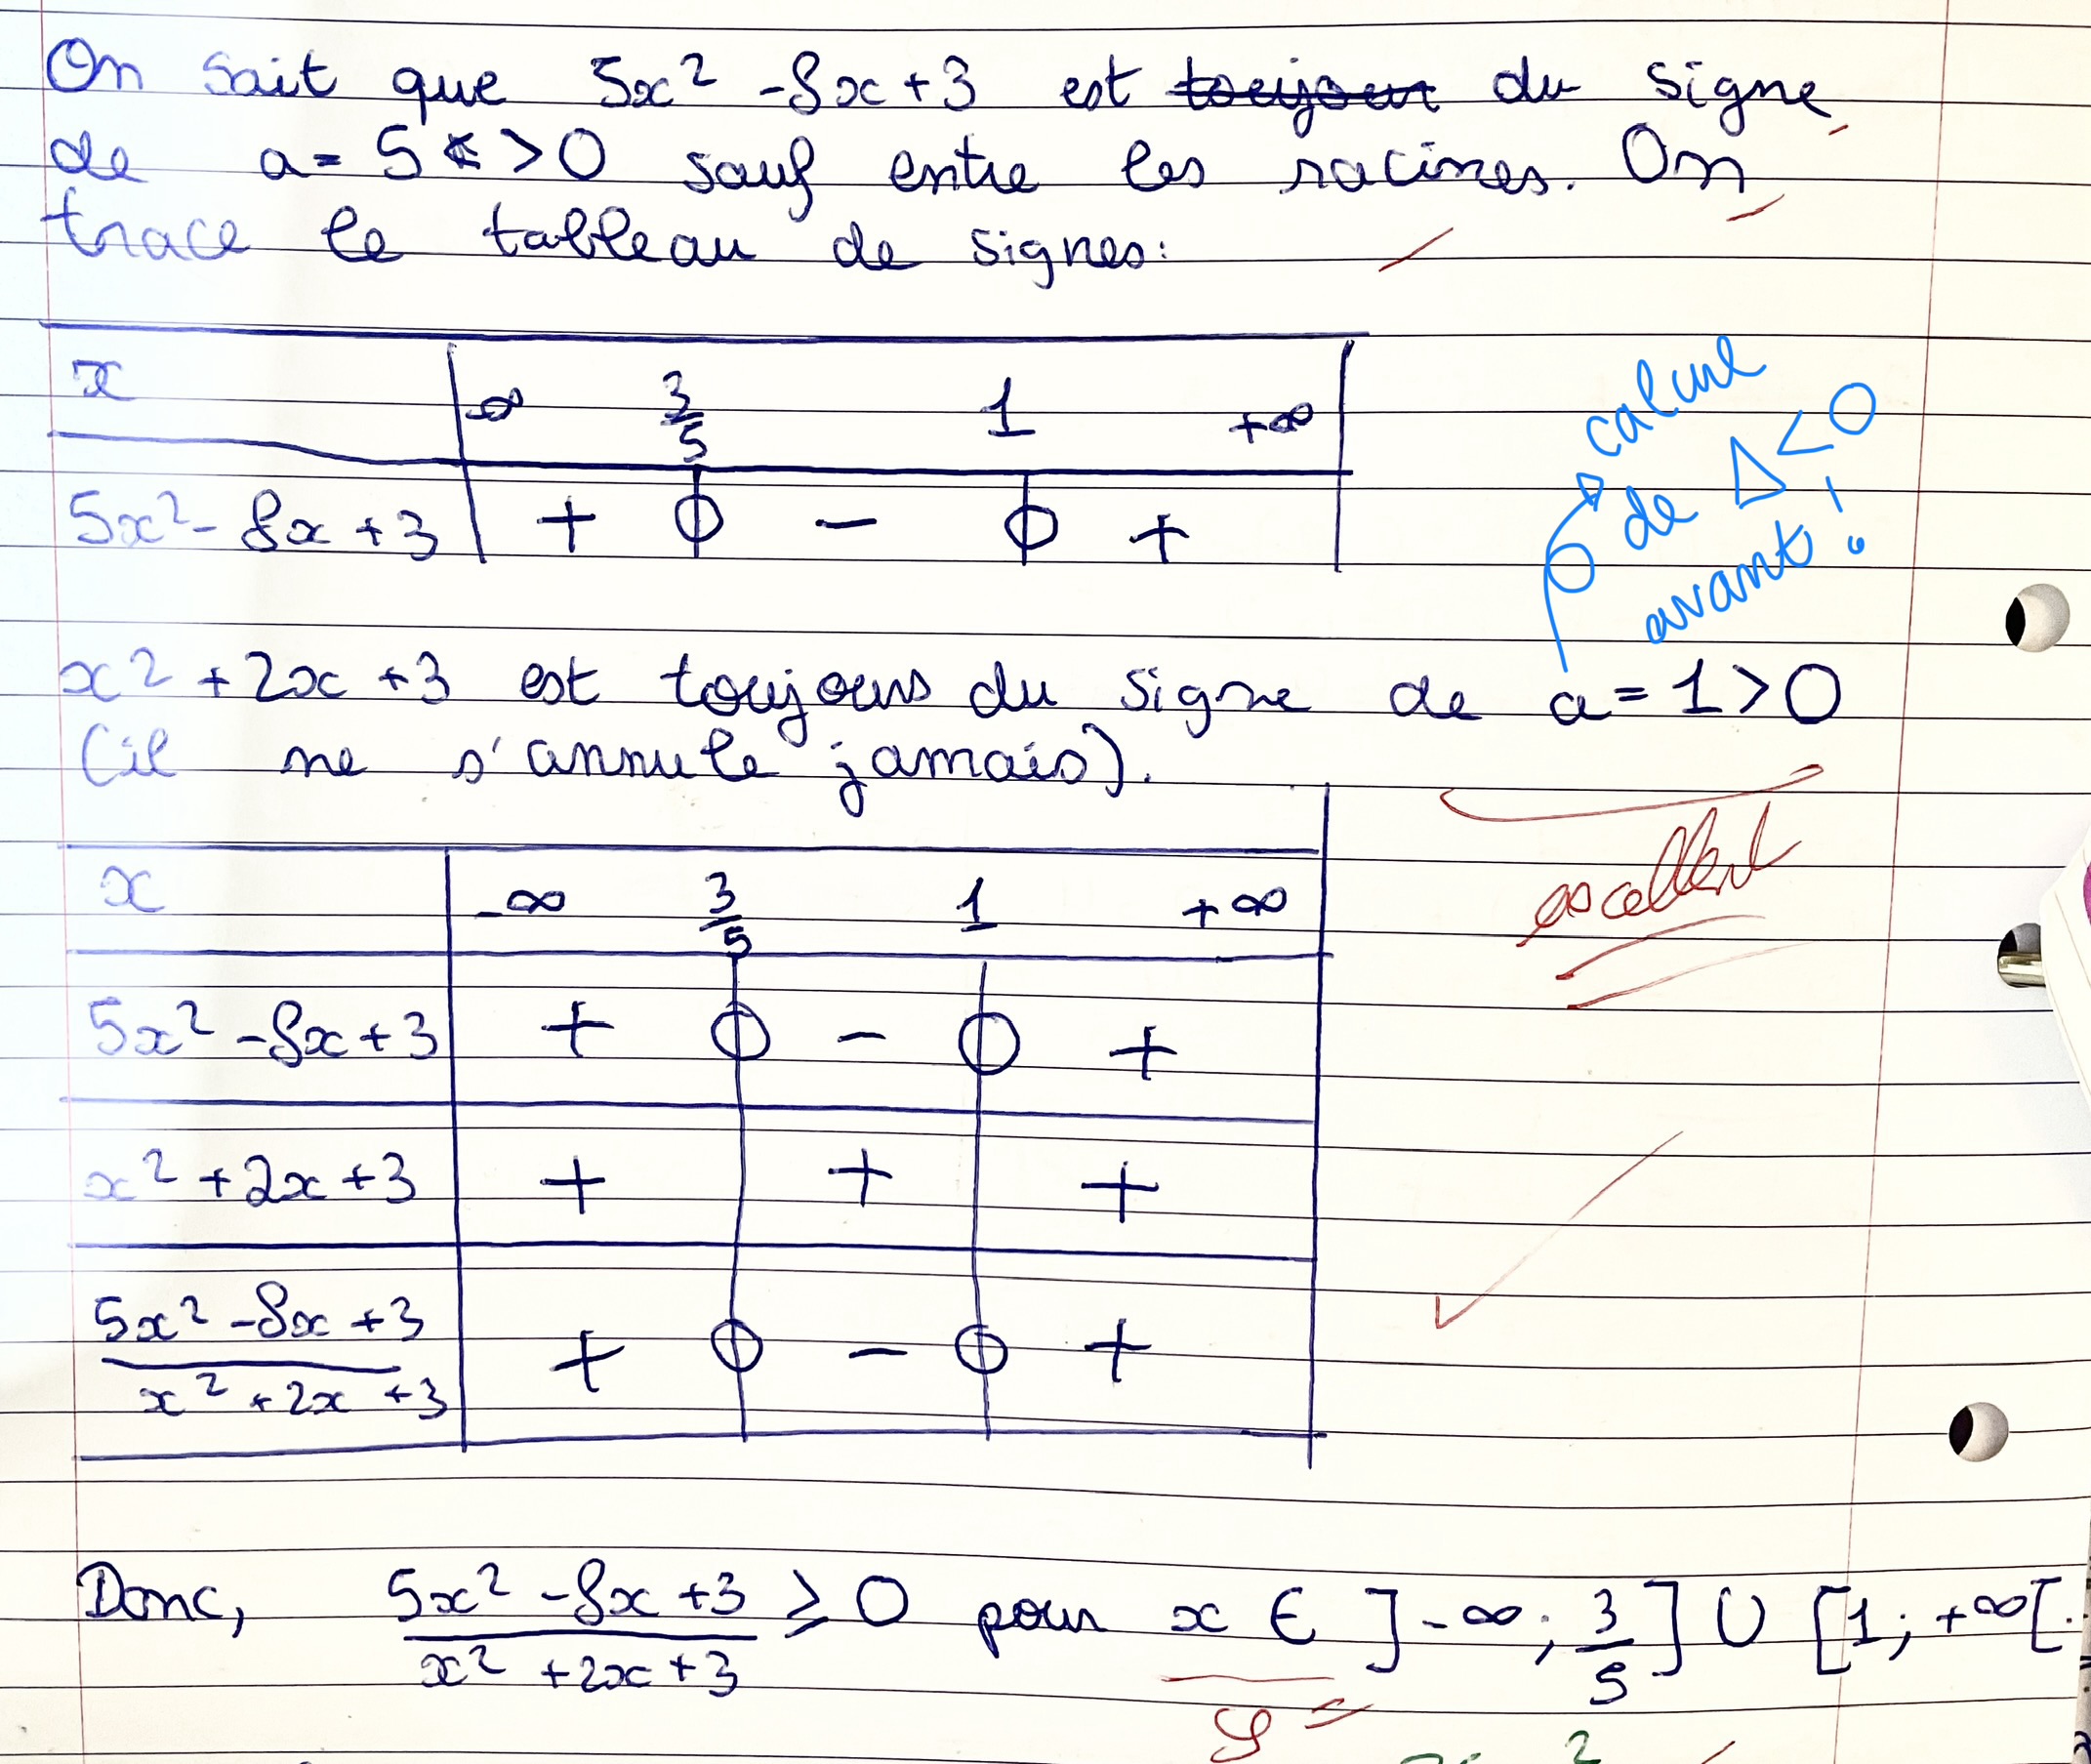 On sait que 5x² -8x+3 est toujour du signe
de a= 5 < >0 sauf entre les racines. On
trace le tableau de signes:
x -∞ 3/5 1 +∞
5x²- 8x +3 + 0 - 0 +
calcul
de Δ<0
avant !
x² +2x +3 est toujours du signe de a= 1>0
(il ne s'annule jamais).
excellent
x -∞ 3/5 1 +∞
5x² -8x+3 + 0 - 0 +
x² +2x+3 + + +
5x² -8x +3
/ x² +2x +3 + 0 - 0 +
Donc, 5x² -8x +3 / x² +2x+3 ≥ 0 pour x ∈ ]-∞; 3/5] U [1; +∞[.